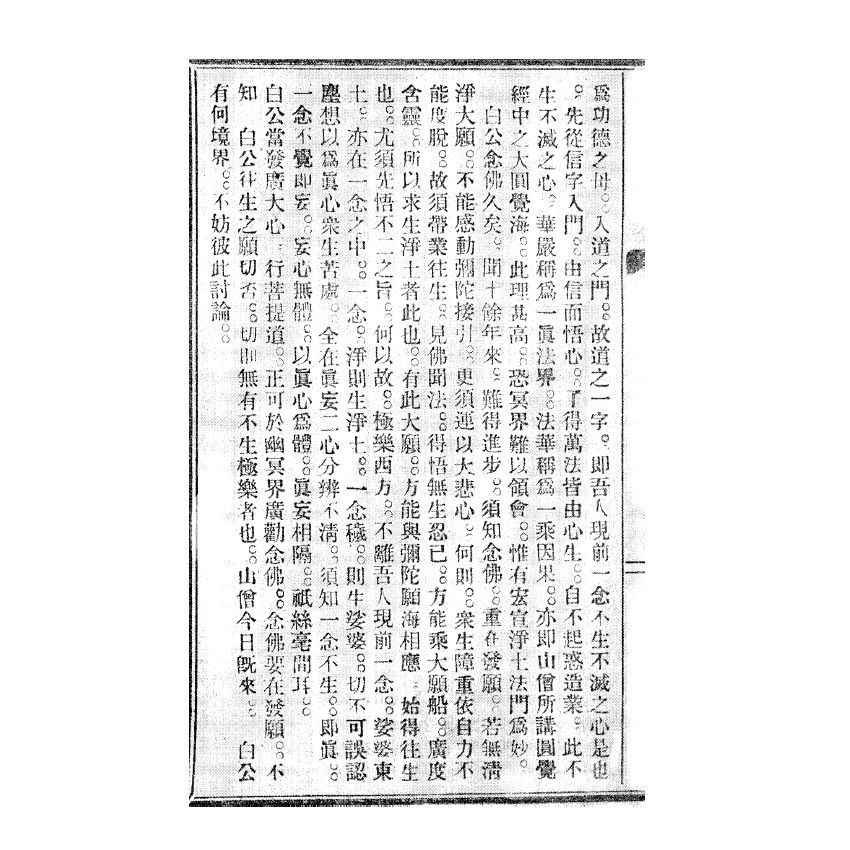 爲功德之母。入道之門。故道之一字。即吾人現前一念不生不滅之心是也
。先從信字入門。由信而悟心。了得萬法皆由心生。自不起惑造業。此不
生不滅之心。華嚴稱爲一眞法界。法華稱爲一乘因果。亦即山僧所講圓覺
經中之大圓覺海。此理甚高。恐冥界難以領會。惟有宏宣淨土法門爲妙。
白公念佛久矣。聞十餘年來。難得進步。須知念佛。重在發願。若無清
淨大願。不能感動彌陀接引。更須運以大悲心。何則。衆生障重依自力不
能度脫。故須帶業往生。見佛聞法。得悟無生忍已。方能乘大願船。廣度
含靈。所以求生淨土者此也。有此大願。方能與彌陀願海相應。始得往生
也。尤須先悟不二之旨。何以故。極樂西方。不離吾人現前一念。娑婆東
土。亦在一念之中。一念。淨則生淨土。一念穢。則生娑婆。切不可誤認
塵想以爲眞心衆生苦處。全在眞妄二心分辨不清。須知一念不生。即眞。
一念不覺即妄。妄心無體。以眞心爲體。眞妄相隔。祇絲毫間耳。
白公當發廣大心。行菩提道。正可於幽冥界廣勸念佛。念佛要在發願。不
知 白公往生之願切否。切則無有不生極樂者也。山僧今日旣來。 白公
有何境界。不妨彼此討論。